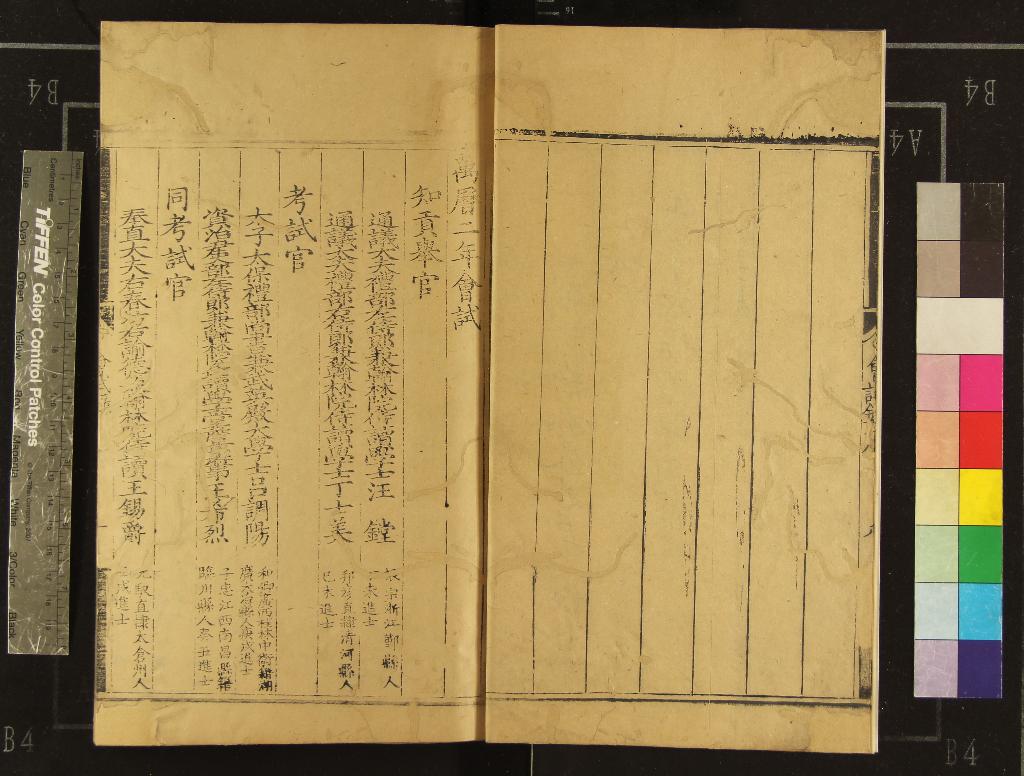 萬曆二年會試
知貢舉官
通議大夫禮部左侍郎兼翰林院侍讀學士汪 鏜
宗浙江鄞縣人
未進士
通議大夫禮部右侍郎兼翰林院侍讀學士丁士美
邦彥直隸清河縣人
己未進士
考試官
太子太保禮部尚書兼武英殿大學士呂調陽
和卿廣西桂林中衛籍湖
廣大冶縣人庚戌進士
資治尹禮部左侍郎兼翰林院王希烈
子忠江西南昌縣籍
臨川縣人癸丑進士
同考試官
奉直大夫右春坊右諭德兼翰林院侍讀王錫爵
元馭直隸太倉州人
壬戌進士
會試錄
B4
B4
B4
B4
A4
TIFFEN Color Control Patches
Centimetres
Blue
Cyan
Green
Yellow
Red
Magenta
White
3/Color
Black